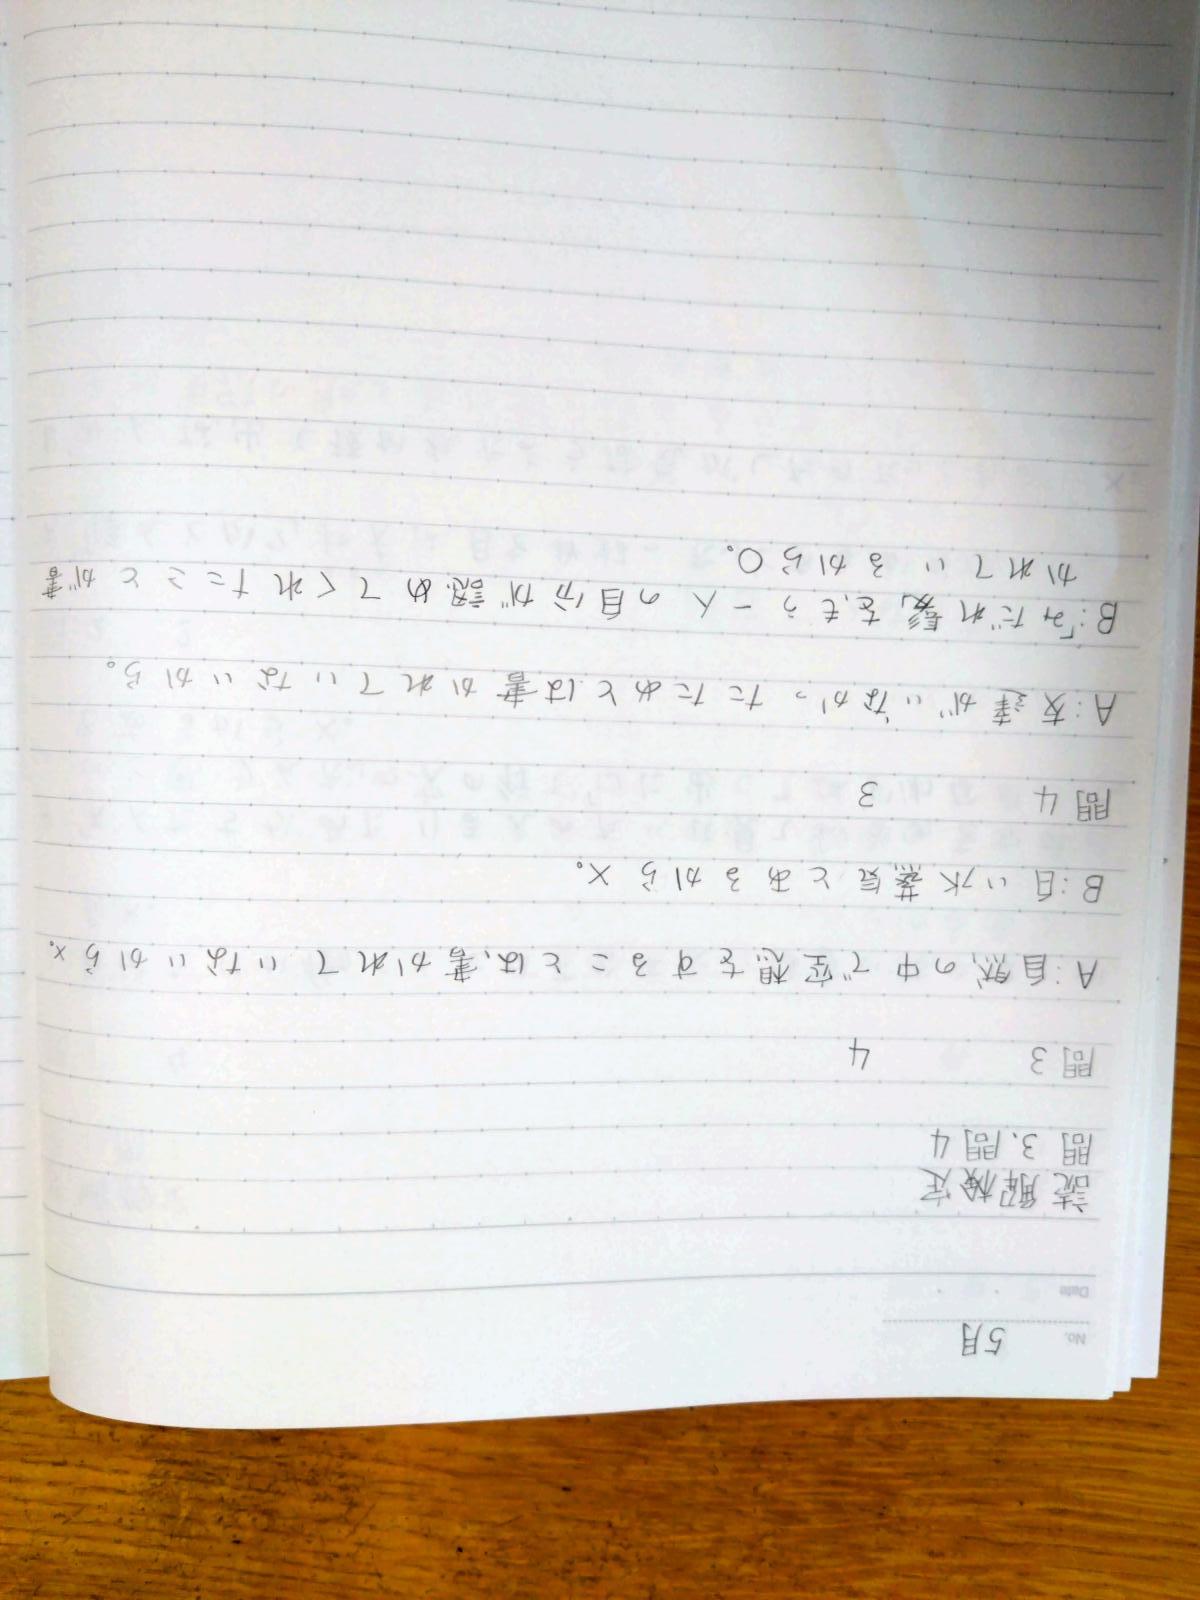 No. 5月
Date
読解検定
問3.問4
問3 4
A:自然の中で空想をすることは、書かれていないから×。
B:白い水蒸気とあるから×。
問4 3
A:友達がいなかったためとは書かれていないから。
B:「みだれ髪」をもう一人の自分が認めてくれたことが書
かれているから○。